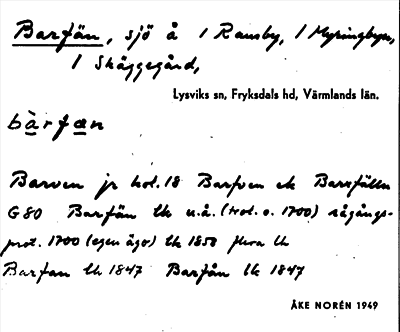 Barfän, sjö å 1 Ransby, 1 Myringbyn,
1 Skäggegård,
Lysviks sn, Fryksdals hd, Värmlands län.
bàrfan
Barven jr hol. 18 Barfven ek Barsfälln
G80 Barfän lk u.å. (trol. o. 1700) rågångs-
prot. 1700 (egen ägo) lk 1850 flera lk
Barfan lk 1847 Barfån lk 1847
ÅKE NORÉN 1949